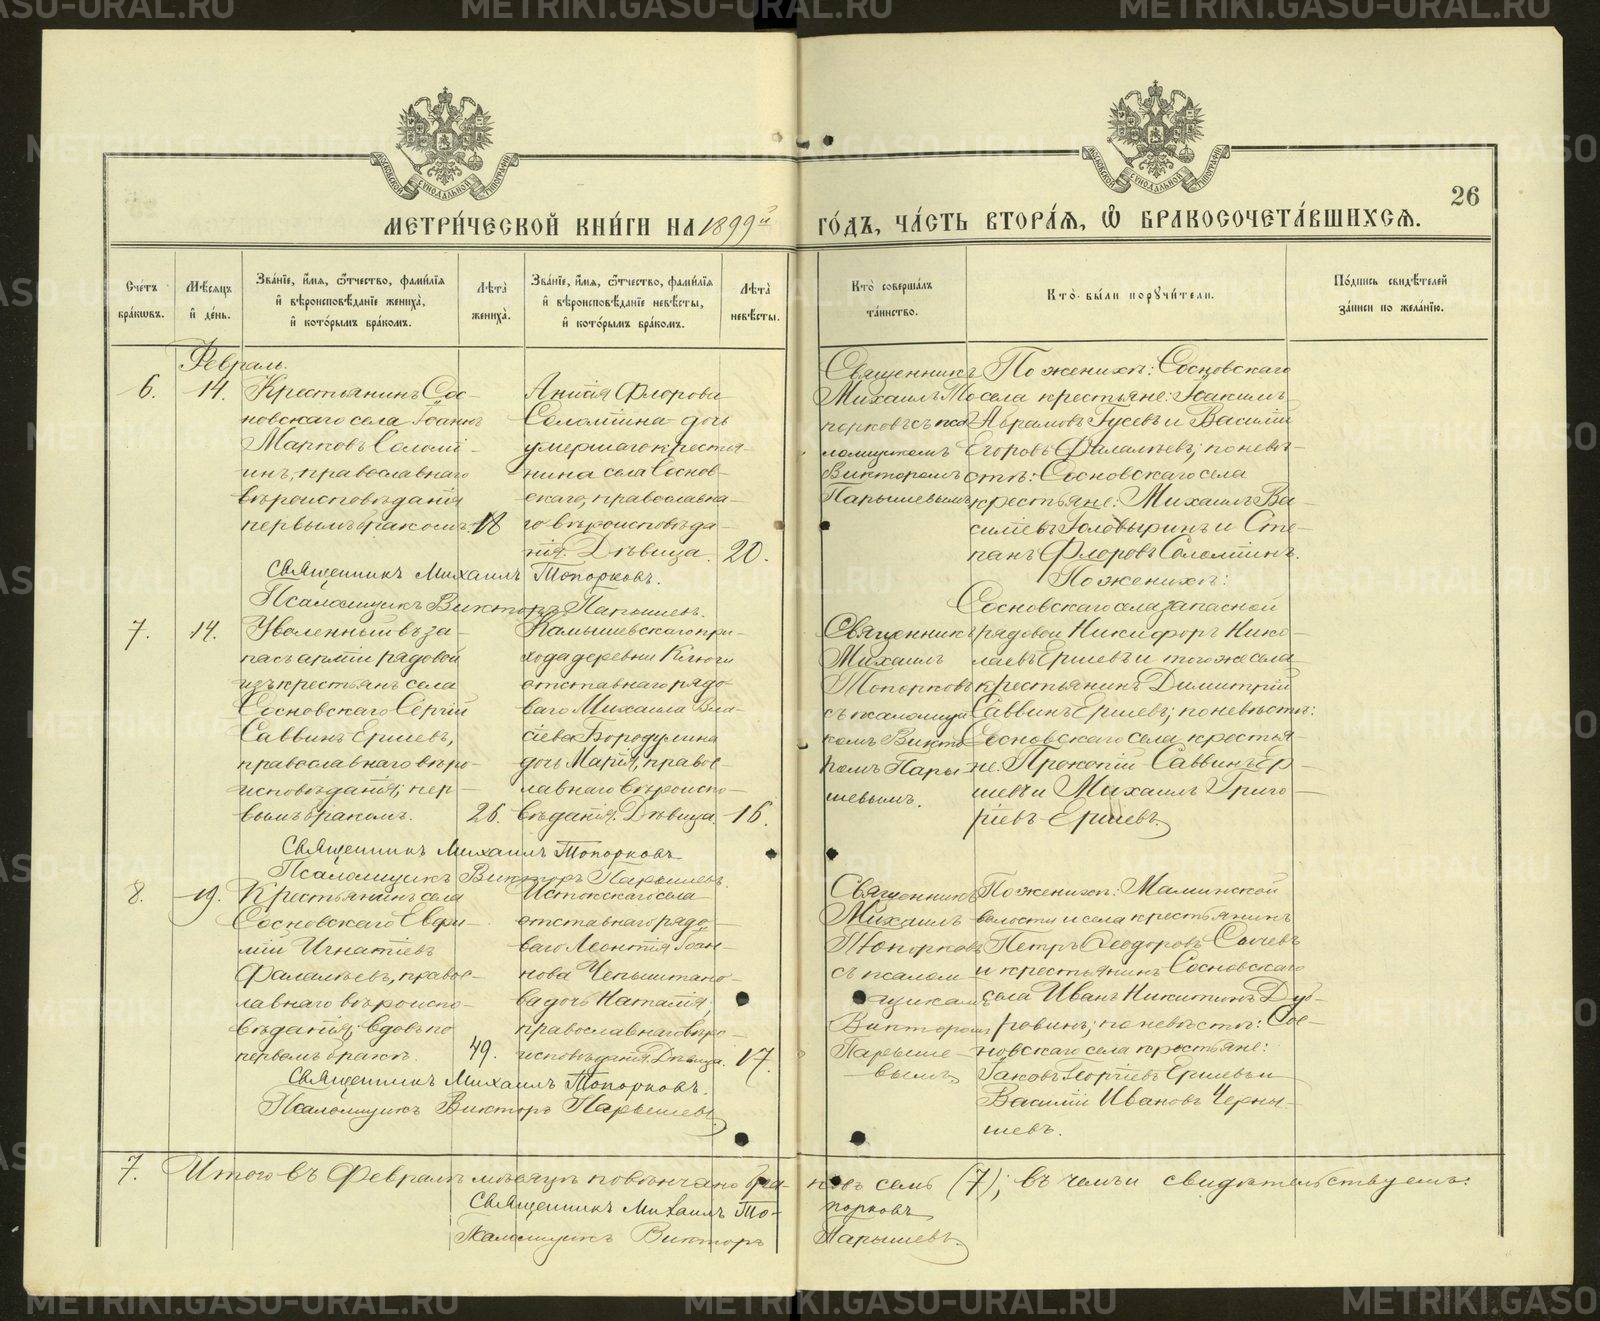 МЕТРИ́ЧЕСКОЙ КНИ́ГИ НА 1899й
ГО́ДЪ, ЧА́СТЬ ВТОРА́Я, Ѽ БРАКОСОЧЕТА́ВШИХСЯ.
26
Сче́тъ бра́кѡвъ.
Мѣ́сяцъ и҆ де́нь.
Зва́нїе, и҆́мя, ѻ҆́тчество, фами́лїя и҆ вѣроисповѣ́данїе жениха̀, и҆ кото́рымъ бра́комъ.
Лѣта̀ жениха̀.
Зва́нїе, и҆́мя, ѻ҆́тчество, фами́лїя и҆ вѣроисповѣ́данїе невѣ́сты, и҆ кото́рымъ бра́комъ.
Лѣта̀ невѣ́сты.
Кто̀ соверша́лъ та́инство.
Кто̀ бы́ли поручи́тели.
По́дпись свидѣ́телей за́писи по жела́нїю.
Февраль.
6.
14.
Крестьянинъ Сос-
новскаго села Іоаннъ
Марковъ Соломі-
инъ, православнаго
вѣроисповѣданія
первымъ бракомъ
18
Анисія Флорова
Соломіина дочь
умершаго крестья-
нина села Соснов-
скаго, православна-
го вѣроисповѣда-
нія. Дѣвица.
20.
Священникъ
Михаилъ То
порковъ съ пса
ломщикомъ
Викторомъ
Парышевымъ
По женихѣ: Сосновскаго
села крестьяне: Іоакимъ
Абрамовъ Гусевъ и Василій
Егоровъ Фалалѣевъ; по невѣ-
стѣ: Сосновскаго села
крестьяне: Михаилъ Ва-
силіевъ Головыринъ и Сте-
панъ Флоровъ Соломіинъ.
Священникъ Михаилъ Топорковъ.
Псаломщикъ Викторъ Парышевъ.
7.
14.
Уволенный въ за-
пасъ арміи рядовой
изъ крестьянъ села
Сосновскаго Сергій
Саввинъ Ершевъ,
православнаго вѣро-
исповѣданія, пер-
вымъ бракомъ.
26.
Камышевскаго при-
хода деревни Ключи
отставнаго рядо-
ваго Михаила Вла-
сіева Бородулина
дочь Марія, правос-
лавнаго вѣроиспо-
вѣданія. Дѣвица.
16.
Священникъ
Михаилъ
Топорковъ
съ псаломщи
комъ Викто
ромъ Пары
шевымъ.
По женихѣ:
Сосновскаго села запасной
рядовой Никифоръ Нико-
лаевъ Ершевъ и того же села
крестьянинъ Димитрій
Саввинъ Ершевъ; по невѣстѣ:
Сосновскаго села крестья-
не: Прокопій Саввинъ Ер-
шевъ и Михаилъ Григо-
ріевъ Ершевъ.
Священникъ Михаилъ Топорковъ
Псаломщикъ Викторъ Парышевъ.
8.
19.
Крестьянинъ села
Сосновскаго Евфи-
мій Игнатіевъ
Фалалѣевъ, правос-
лавнаго вѣроиспо-
вѣданія; вдовъ по
первомъ бракѣ.
49.
Истокскаго села
отставнаго рядо-
ваго Леонтія Іоан-
нова Чепыштано-
ва дочь Наталія,
православнаго вѣро-
исповѣданія. Дѣвица.
17.
Священникъ
Михаилъ
Топорковъ
съ псалом
щикомъ
Викторомъ
Парыше-
вымъ
По женихѣ: Маминской
волости и села крестьянинъ
Петръ Ѳеодоровъ Сычевъ
и крестьянинъ Сосновскаго
села Иванъ Никитинъ Дуб-
ровинъ; по невѣстѣ: Сос-
новскаго села крестьяне:
Іаковъ Георгіевъ Ершевъ и
Василій Ивановъ Черны-
шевъ.
Священникъ Михаилъ Топорковъ.
Псаломщикъ Викторъ Парышевъ.
7. Итого въ Февралѣ мѣсяцѣ повѣнчано бра-
ковъ семь (7); въ чемъ и свидѣтельствуемъ:
Священникъ Михаилъ То-
порковъ
Псаломщикъ Викторъ
Парышевъ.